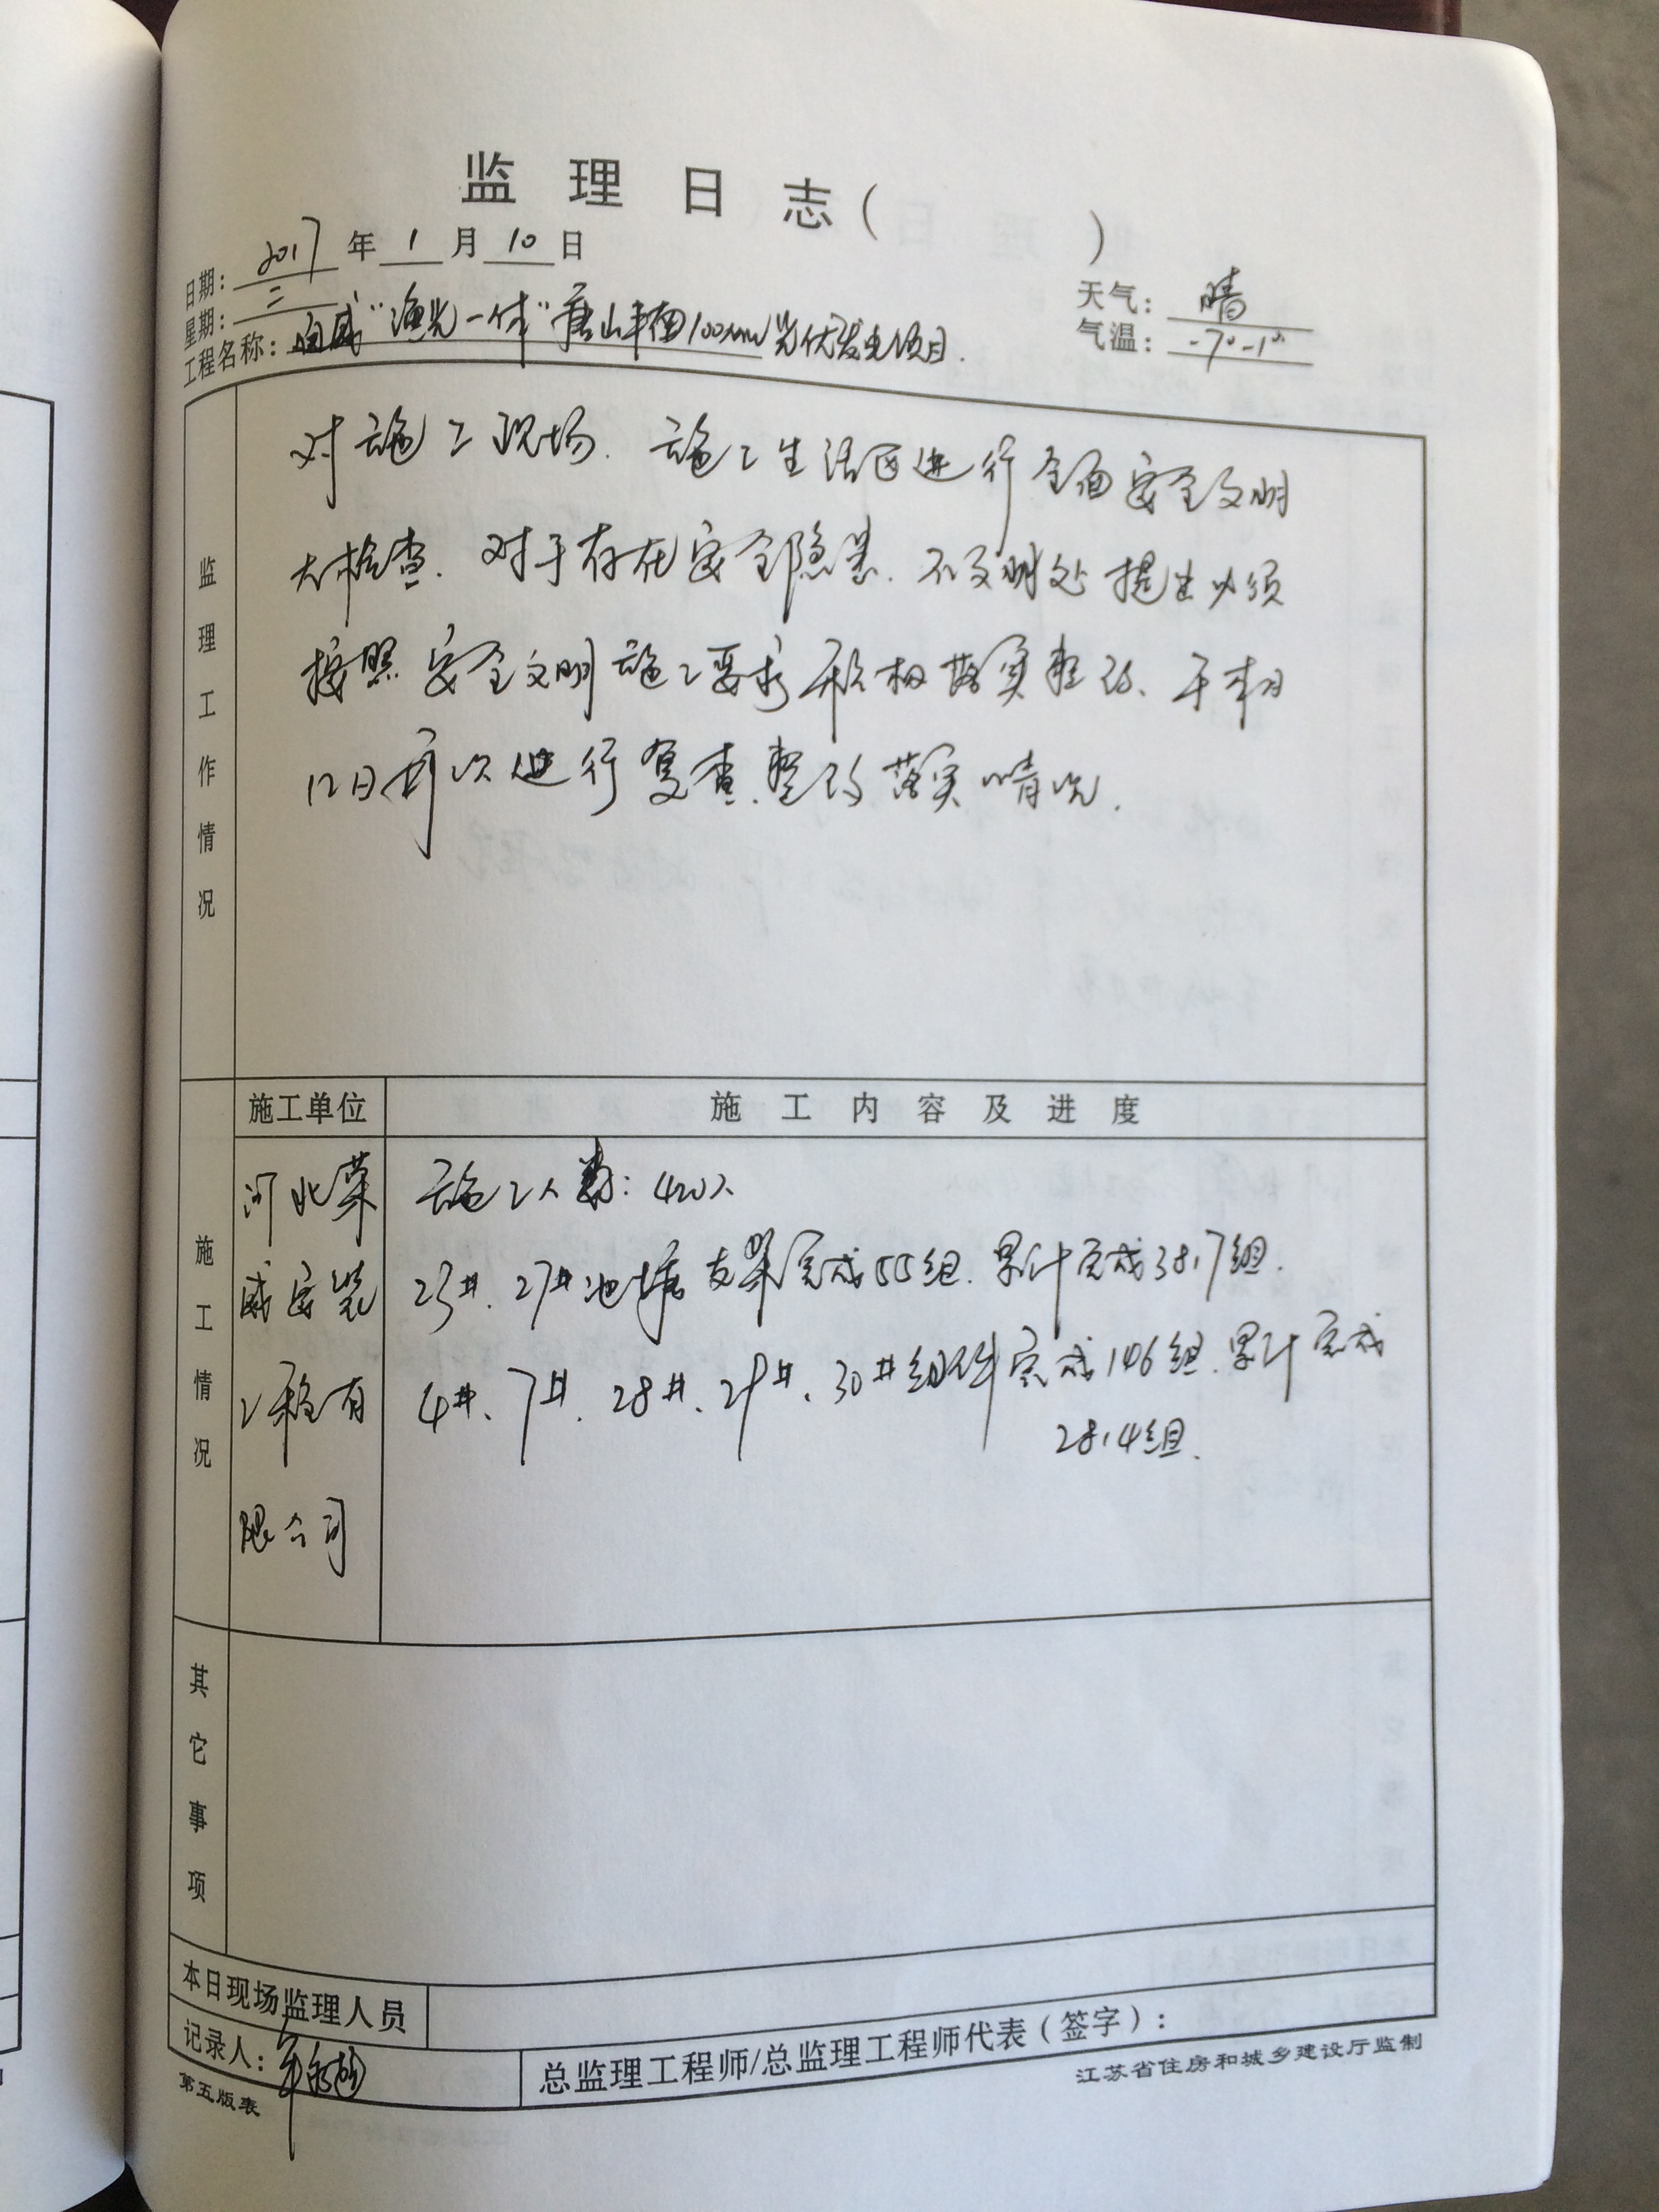 监理日志( )
日期:2017年1月10日
星期:二
天气:晴
工程名称:通威"渔光一体"唐山丰南100MW光伏发电项目.
气温:-7°-1°
监理工作情况
对施工现场.施工生活区进行全面安全文明
大检查.对于存在安全隐患.不文明处提出必须
按照安全文明施工要求积极落实整改、于本月
12日再次进行复查.整改落实情况.
施工单位
施工内容及进度
施工情况
河北荣
威安装
工程有
限公司
施工人数:420人
23#.27#池塘支架完成55组.累计完成3817组.
4#、7#.28#、29#、30#组件完成146组.累计完成
2814组.
其它事项
本日现场监理人员
记录人:
总监理工程师/总监理工程师代表(签字):
第五版表
江苏省住房和城乡建设厅监制